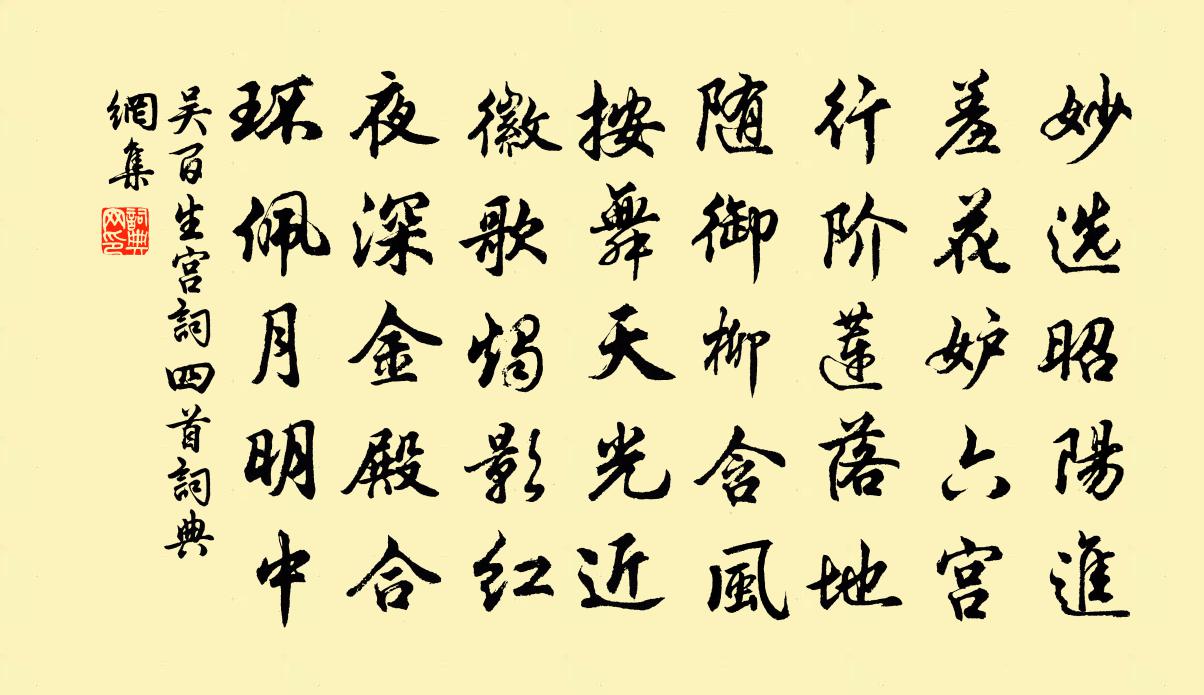 妙选昭陽進
羞花妒六宫
行阶蓮落地
随御柳含風
按舞天光近
徽歌燭影红
夜深金殿合
环佩月明中
吴百生宫詞四首詞典
網集
詞典
网印